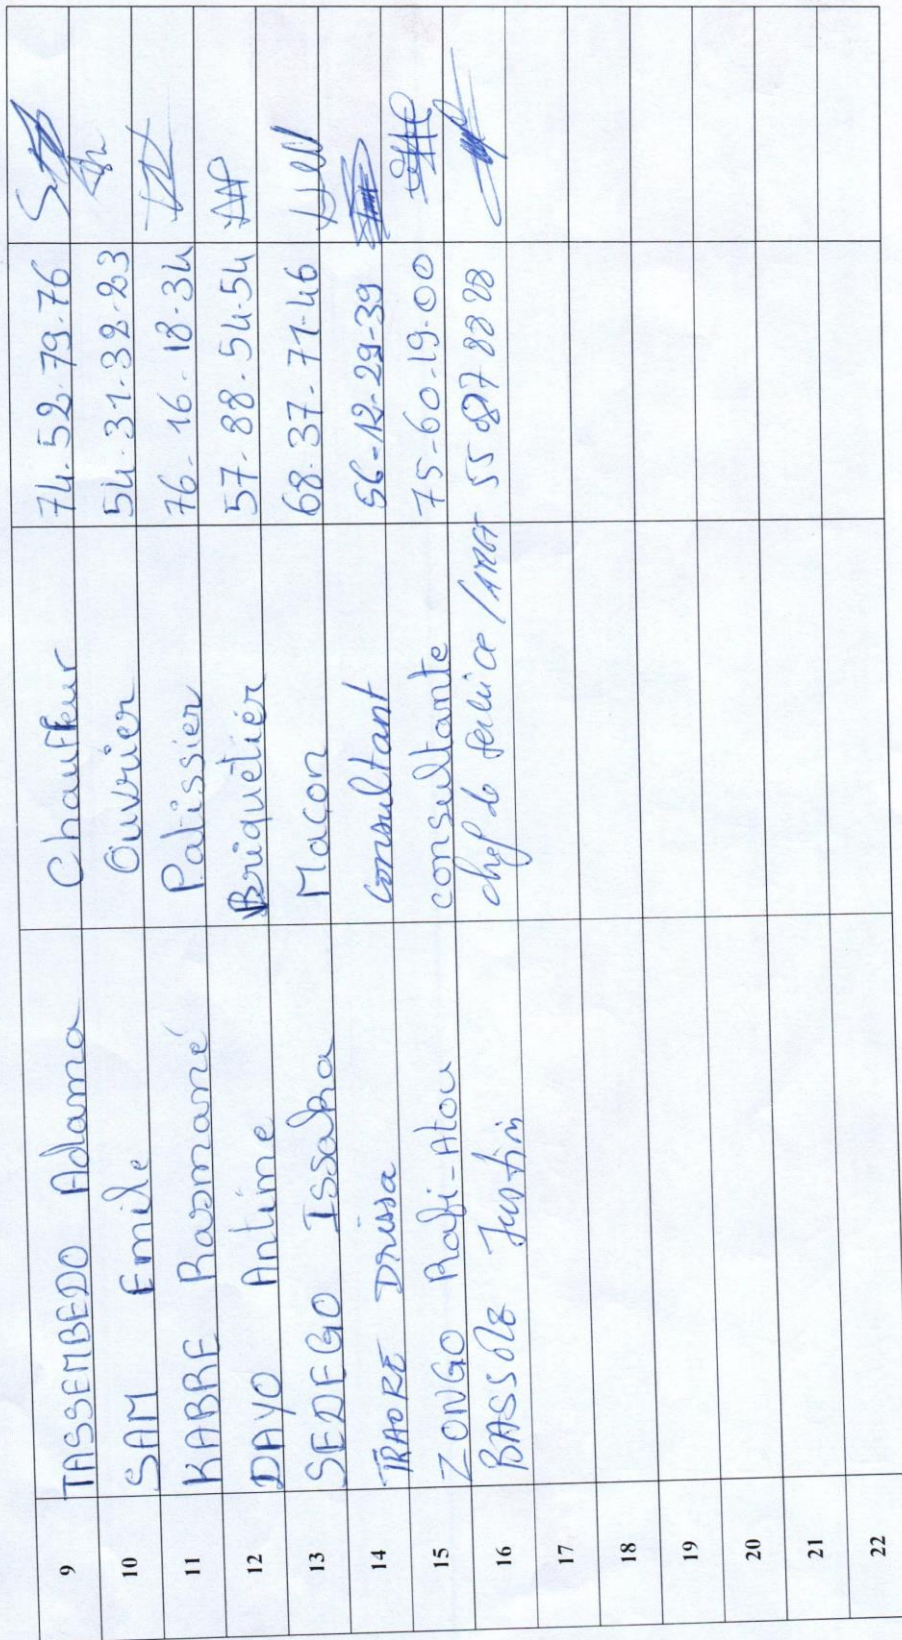 9 TASSEMBEDO Adama Chauffeur 74.52.79.76
10 SAM Emile Ouvrier 54.31.32.23
11 KABRE Rasmané Patissier 76.16.18.34
12 DAYO Antime Briquetier 57.88.54.54
13 SEDEGO Issaka Maçon 68.37.71.46
14 TRAORE Drissa Consultant 56-12-29-39
15 ZONGO Rafi-Atou consultante 75-60.19.00
16 BASSOLE Justin chef de service 55 87 88 28
17
18
19
20
21
22